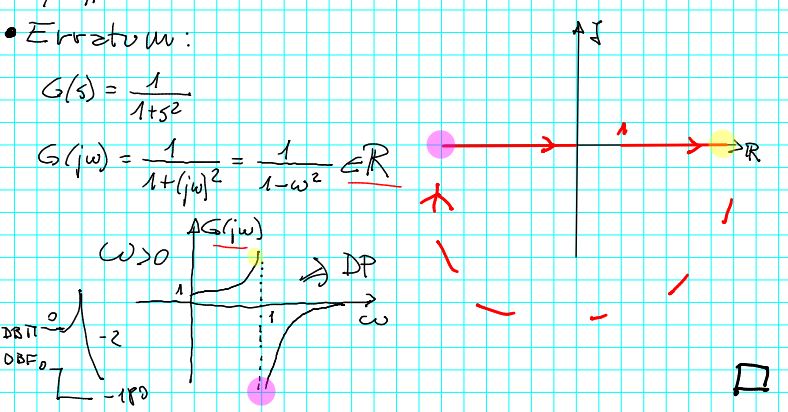 • Erratum:
G(s) = 1/(1+s²)
G(jω) = 1/(1+(jω)²) = 1/(1-ω²) ∈ ℝ
ω>0
G(jω)
⇒ DP
1
1
ω
DBM
0
-2
DBF
0
-180
J
1
ℝ